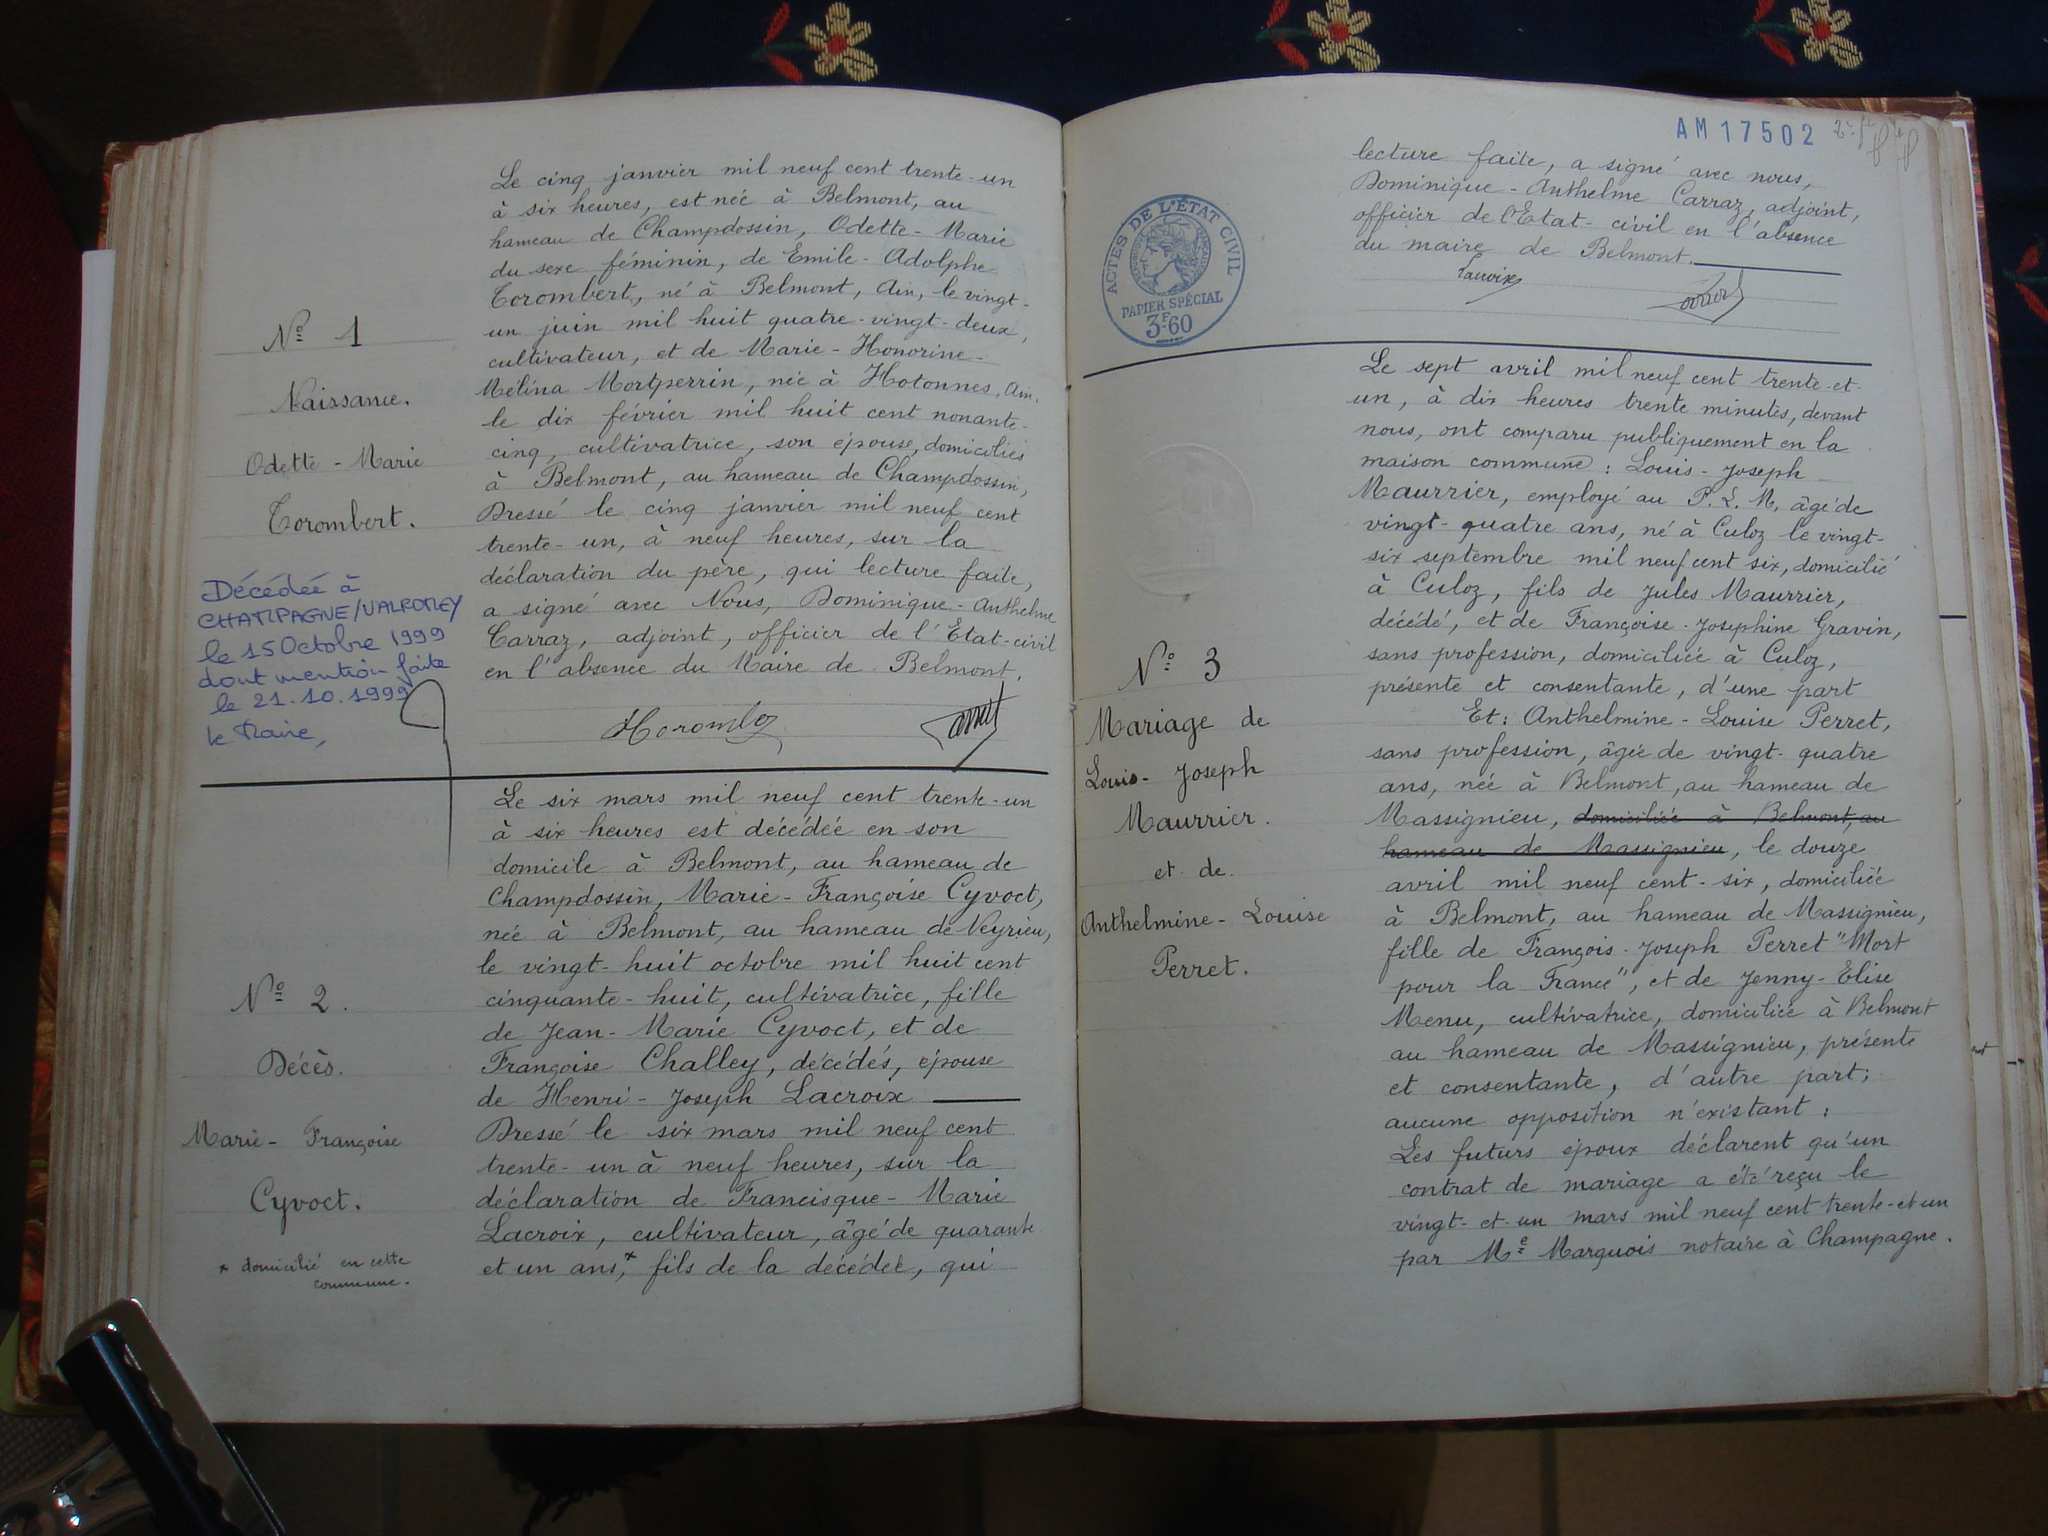 Le cinq janvier mil neuf cent trente-un
à six heures, est née à Belmont, au
hameau de Champdossin, Odette-Marie
du sexe féminin, de Emile-Adolphe
Corombert, né à Belmont, Ain, le vingt-
un juin mil huit quatre-vingt-deux,
cultivateur, et de Marie-Honorine-
Mélina Montperrin, née à Hotonnes, Ain,
le dix février mil huit cent nonante-
cinq, cultivatrice, son épouse, domiciliés
à Belmont, au hameau de Champdossin,
Dressé le cinq janvier mil neuf cent
trente-un, à neuf heures, sur la
déclaration du père, qui lecture faite,
a signé avec Nous, Dominique-Anthelme
Carraz, adjoint, officier de l'Etat-civil
en l'absence du Maire de Belmont.
No 1
Naissance.
Odette-Marie
Corombert.
Décédée à
CHAMPAGNE/VALROMEY
le 15 Octobre 1999
dont mention faite
le 21.10.1999
le Maire,
Le six mars mil neuf cent trente-un
à six heures est décédée en son
domicile à Belmont, au hameau de
Champdossin, Marie-Françoise Cyvoct,
née à Belmont, au hameau de Veyrieu,
le vingt-huit octobre mil huit cent
cinquante-huit, cultivatrice, fille
de Jean-Marie Cyvoct, et de
Françoise Challey, décédés, épouse
de Henri-Joseph Lacroix
Dressé le six mars mil neuf cent
trente-un à neuf heures, sur la
déclaration de Francisque-Marie
Lacroix, cultivateur, âgé de quarante
et un ans,* fils de la décédée, qui
No 2.
Décès.
Marie-Françoise
Cyvoct.
* domicilié en cette
commune.
AM17502
lecture faite, a signé avec nous,
Dominique-Anthelme Carraz, adjoint,
officier de l'Etat-civil en l'absence
du maire de Belmont.
Lacroix
ACTES DE L'ÉTAT CIVIL
PAPIER SPÉCIAL
3F.60
Le sept avril mil neuf cent trente-et-
un, à dix heures trente minutes, devant
nous, ont comparu publiquement en la
maison commune : Louis-Joseph
Maurrier, employé au P.L.M, âgé de
vingt-quatre ans, né à Culoz le vingt-
six septembre mil neuf cent six, domicilié
à Culoz, fils de Jules Maurrier,
décédé, et de Françoise-Josephine Gravin,
sans profession, domiciliée à Culoz,
présente et consentante, d'une part
Et : Anthelmine-Louise Perret,
sans profession, âgée de vingt-quatre
ans, née à Belmont, au hameau de
Massignieu, domiciliée à Belmont, au
hameau de Massignieu, le douze
avril mil neuf cent-six, domiciliée
à Belmont, au hameau de Massignieu,
fille de François-Joseph Perret "Mort
pour la France", et de Jenny-Elise
Menu, cultivatrice, domiciliée à Belmont
au hameau de Massignieu, présente
et consentante, d'autre part;
aucune opposition n'existant :
Les futurs époux déclarent qu'un
contrat de mariage a été reçu le
vingt-et-un mars mil neuf cent trente-et-un
par Me Marquois notaire à Champagne.
No 3
Mariage de
Louis-Joseph
Maurrier.
et de.
Anthelmine-Louise
Perret.